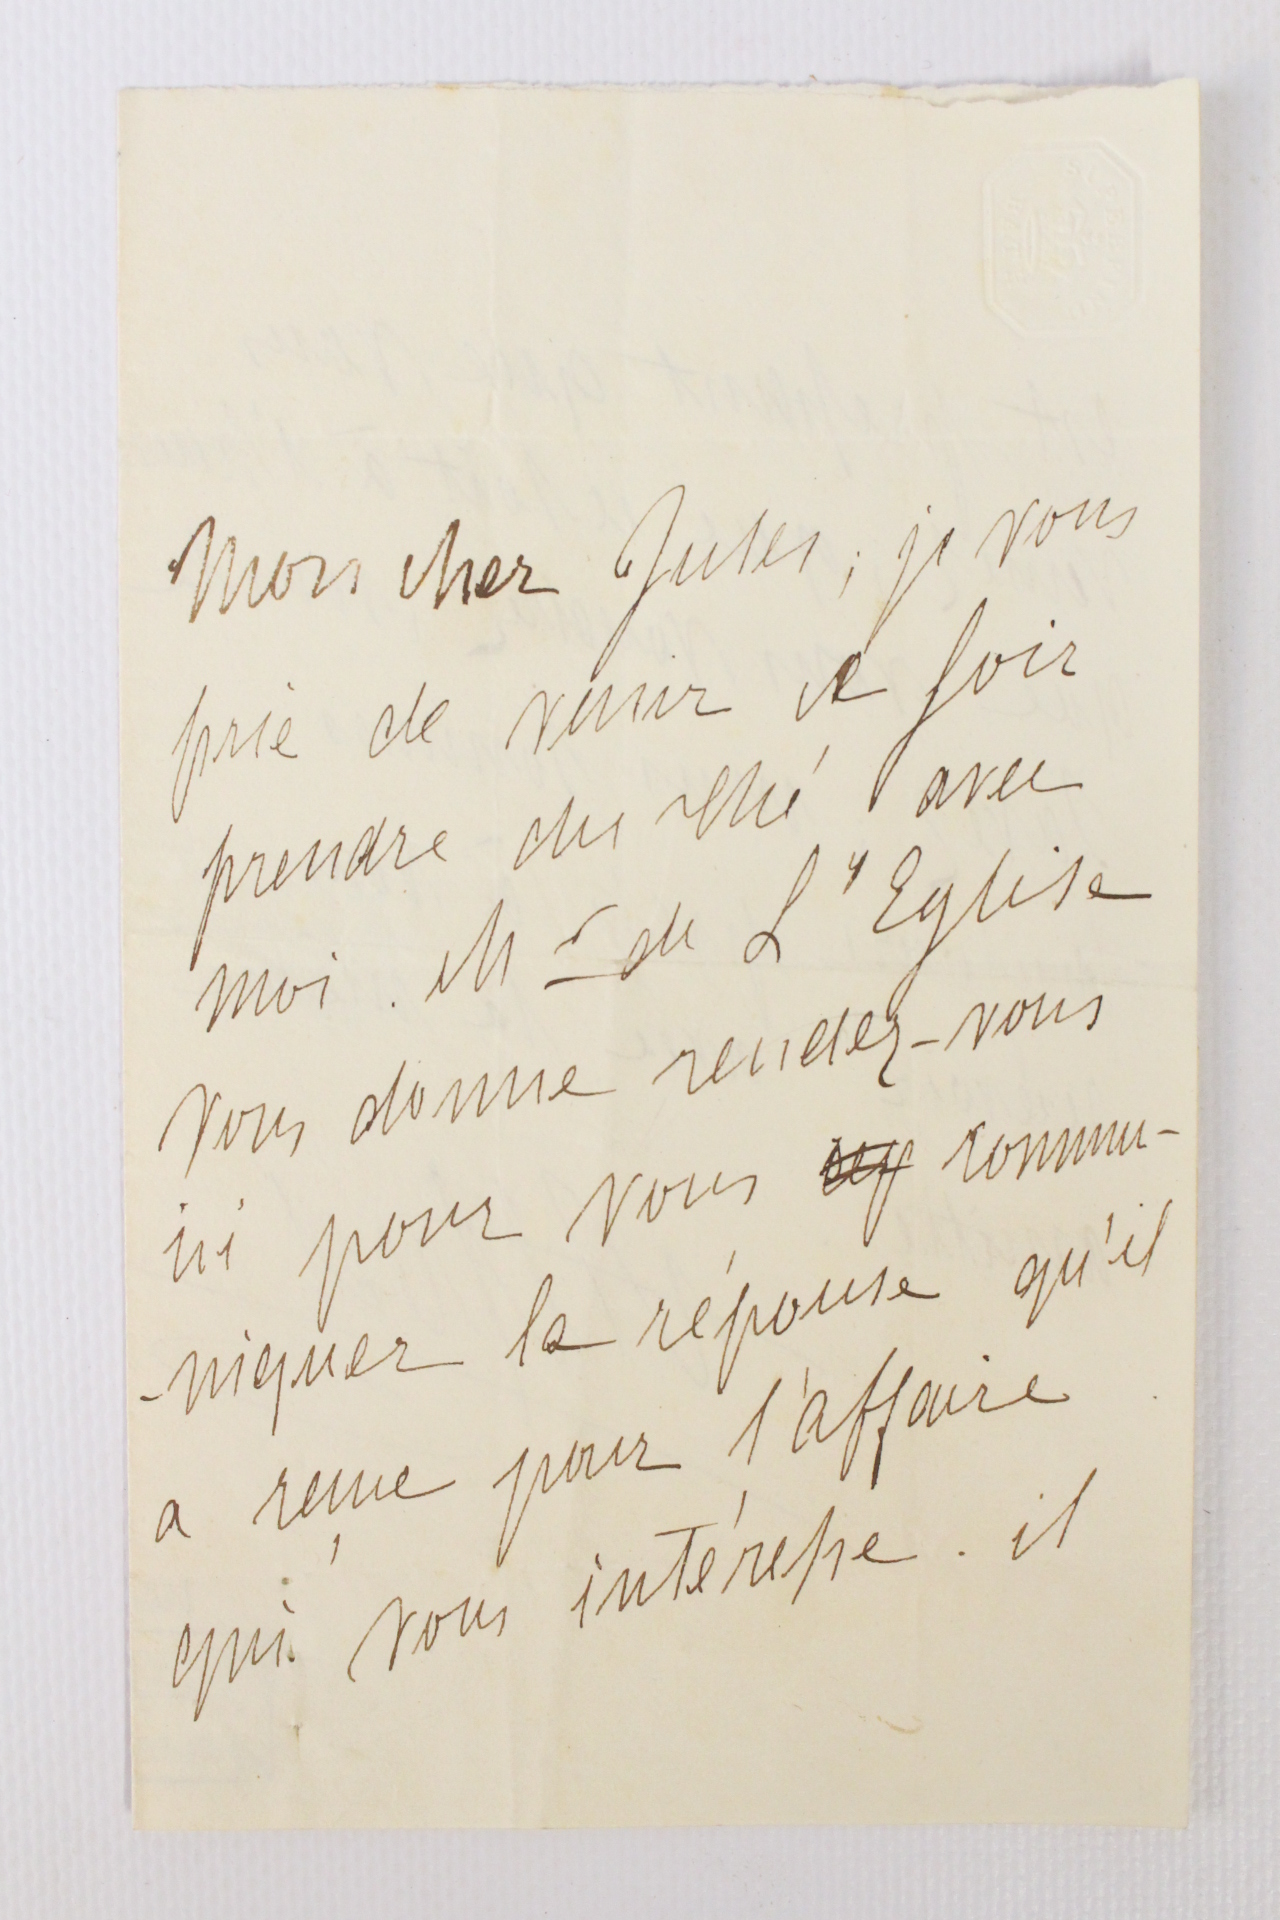 Mon cher Jules, je vous
prie de venir ce soir
prendre du thé avec
moi. Mr de L'Eglise
vous donne rendez-vous
ici pour vous commu-
-niquer la réponse qu'il
a reçue pour l'affaire
qui vous intéresse. il